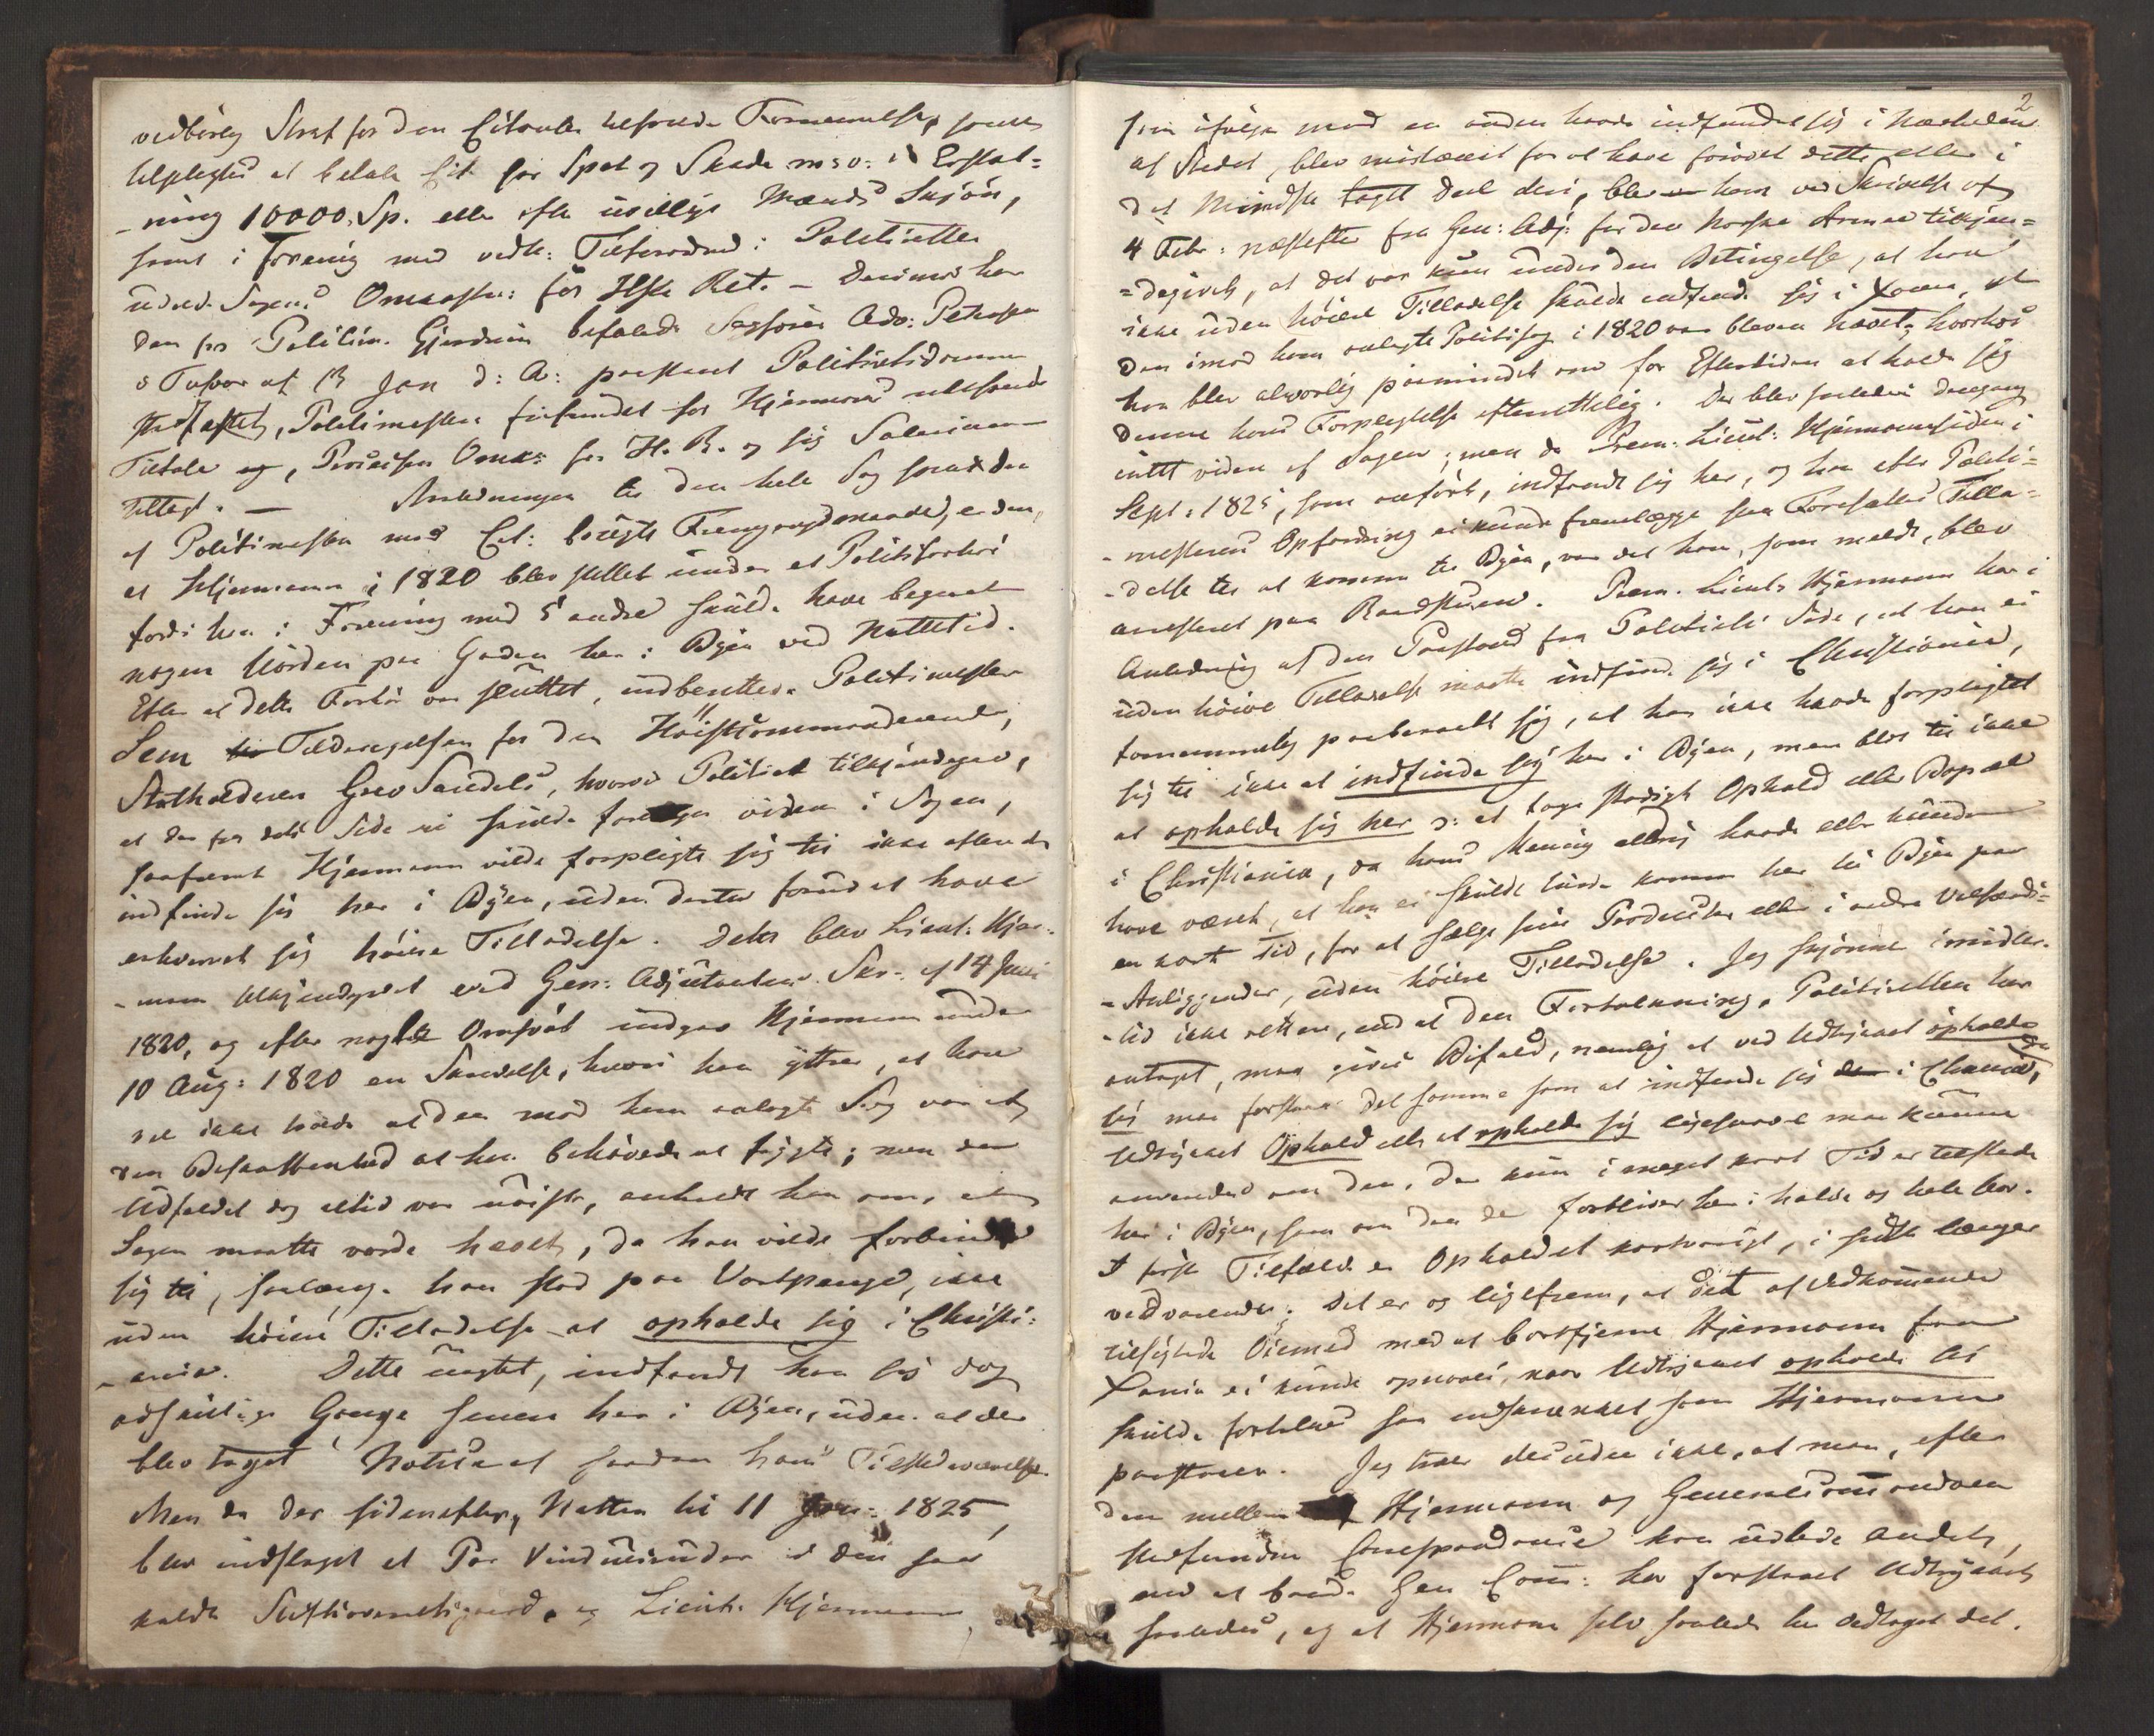 vedbørlig Straf for den Citanten tilføiede Fornærmelse, samt
tilpligtet at betale Cit. for Spot og Skade m: v: i Erstat=
-ning 10000 Sp. eller efter uvillige Mænds Skjøn,
samt i Forening med vedk: Tilforordned: i Politiretten
udrede Sagens Omkostn: for Høieste Ret. – Derimod har
den for Politim. Gjerdrum befalede Sagfører Adv: Petersen
i Tilsvar af 13 Jan d: A: paastaaet Politiretsdommen
stadfæstet, Politimesteren frifunden for Hjermanns
Tiltale og, Processens Omk: for H. R. og sig Salarium
tillagt. — Anledningen til den hele Sag
af Politimesteren mod Cit: brugte Fremgangsmaade, er den,
at Hjermann i 1820 blev stillet under et Politiforhør
fordi han i Forening med 5 andre skulde have begaaet
nogen Uorden paa Gaden her i Byen ved Nattetid.
Efter at dette Forhør var sluttet, indberettede Politimester
Sem Tildragelsen for den Høistkommanderende,
Statholderen Grev Sandels, hvorved Politiet tilkjendegav,
at der fra dets Side ei skulde foretages videre i Sagen,
saafremt Hjermann vilde forpligte sig til ikke oftere at
indfinde sig her i Byen, uden dertil forud at have
erhvervet sig høiere Tilladelse. Dette blev Lieut. Hjer-
-mann tilkjendegivet ved Gen: Adjutantens Skr: af 14 Juni
1820, og efter nogle Omsvøb indgav Hjermann under
10 Aug: 1820 en Skrivelse, hvori han yttrer, at han
vel ikke troede at den mod ham anlagte Sag var af
den Beskaffenhed at han behøvede at frygte; men da
Udfaldet dog altid var uvist, anholdt han om, at
Sagen maatte vorde hævet, da han vilde forbinde
sig til, saalænge han stod paa Vartpenge, ikke
uden høiere Tilladelse at opholde sig i Christi-
-ania. Dette uagtet, indfandt han sig dog
adskillige Gange senere her i Byen, uden at der
blev taget Notits af saadan hans Tilstedeværelse.
Men da der sidenefter, Natten til 11 Jan: 1825,
blev indslaget et Par Vinduesruder i den saa
kaldte Stiftsoveretsgaard, og Lieut. Hjermann,
2
som ifølge med en anden havde indfundet sig i Nærheden
af Stedet, blev mistænkt for at have forøvet dette eller i
det Mindste taget Deel deri, blev ham ved Skrivelse af
4 Febr: næstefter fra Gen: Adj: for den Norske Armee tilkjen=
=degivet, at det var kun under den Betingelse, at han
ikke uden høiere Tilladelse skulde indfinde sig i Xania, at
den imod ham anlagte Politisag i 1820 var bleven hævet, hvorhos
han blev alvorlig paamindet om for Eftertiden at holde sig
denne hans Forpligtelse efterrettelig. Der blev saaledes dengang
intet videre af Sagen; men da Prem: Lieut: Hjermann siden i
Sept: 1825, som anført, indfandt sig her, og han efter Politi=
-mesterens Opfordring ei kunde fremlægge sin Foresattes Tilla=
-delse til at komme til Byen, var det han, som meldt, blev
arresteret paa Raadstuen. Prem. Lieut. Hjermann har i
Anledning af den Paastand fra Politiets Side, at han ei
uden høiere Tilladelse maatte indfinde sig i Christiania,
fornemmelig paaberaabt sig, at han ikke havde forpligtet
sig til ikke at indfinde sig her i Byen, men blot til ikke
at opholde sig her ɔ: at tage stadigt Ophold eller Bopæl
i Christiania, da hans Mening aldrig havde eller kunde
have været, at han ei skulde turde komme her til Byen paa
en kort Tid, for at sælge sine Producter eller i andre Velfærds=
-Anliggender, uden høiere Tilladelse. Jeg skjønner imidler-
-tid ikke rettere, end at den Fortolkning, Politiretten har
antaget, maa gives Bifald, nemlig at ved Udtrykket opholde
sig maa forstaaes det samme som at indfinde sig i Chania, da
Udtrykket Ophold eller at opholde sig ligesaavel maa kunne
anvendes om den, der kun i meget kort Tid er tilstede
her i Byen, som om den der forbliver her i halve og hele Aar.
I første Tilfælde er Opholdet kortvarigt, i sidste længere
vedvarende; det er og ligefrem, at det af Vedkommende
tilsigtede Øiemed med at bortfjerne Hjermann fra
Xania ei kunde opnaaes, naar Udtrykket opholde sig
skulde fortolkes saa indskrænket som Hjermann
paastaaer. Jeg troer desuden ikke, at man, efter
den mellem Hjermann og Generalcommandoen
stedfundne Correspondance kan udlede andet,
end at baade Gen Com: har forstaaet Udtrykket
saaledes, og at Hjermann selv saaledes har vedtaget det.